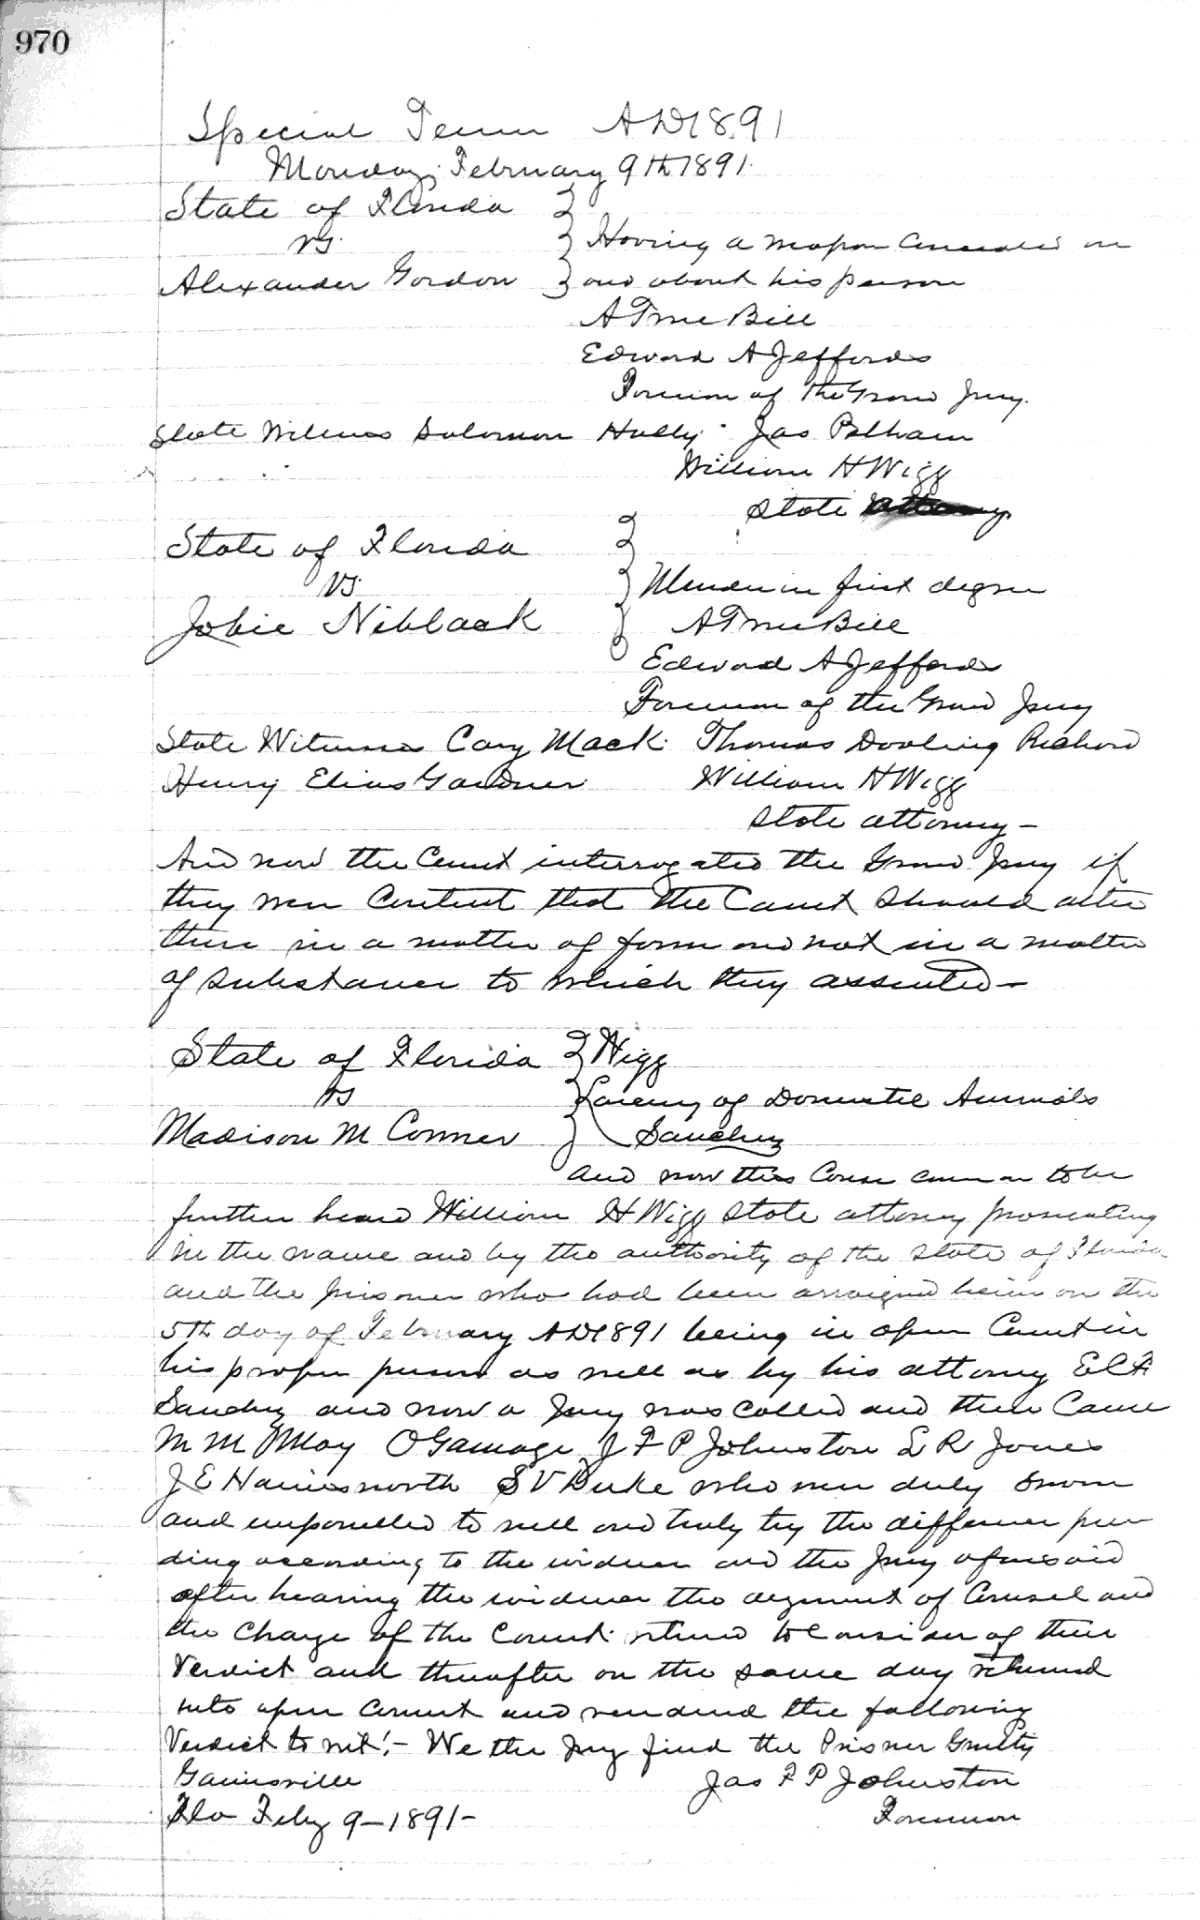 970
Special Term AD 1891
Monday February 9th 1891
State of Florida
vs.
Alexander Gordon
Having a weapon concealed on
and about his person
A True Bill
Edward A Jeffords
Foreman of the Grand Jury.
State Witness Solomon Hully Jas Pelham
William H Wigg
State attorney
State of Florida
vs.
Jobie Niblack
Murder in first degree
A True Bill
Edward A Jeffords
Foreman of the Grand Jury
State Witness Cary Mack. Thomas Dowling Richard
Henry Elias Gardner William H Wigg
State attorney -
And now the Court interrogated the Grand Jury if
they were Content that the Court should alter
them in a matter of form and not in a matter
of substance to which they assented -
State of Florida
vs
Madison M Conner
Wigg
Larceny of Domestic Animals
Sanchez
and now this Cause came on to be
further heard William H Wigg State attorney prosecuting
in the name and by the authority of the State of Florida
and the prisoner who had been arraigned herein on the
5th day of February AD 1891 being in open Court in
his proper person as well as by his attorney E C F
Sanchez and now a Jury was Called and there Came
M M May O Gamage J F P Johnston L R Jones
J E Hainsworth S V Duke who were duly sworn
and empanelled to well and truly try the difference pen
ding according to the evidence and the Jury aforesaid
after hearing the evidence the argument of Counsel and
the Charge of the Court retired to Consider of their
Verdict and thereafter on the same day returned
into open Court and rendered the following
Verdict to wit:- We the Jury find the Prisner Guilty
Gainesville Jas F P Johnston
Fla Feby 9 - 1891 - Foreman